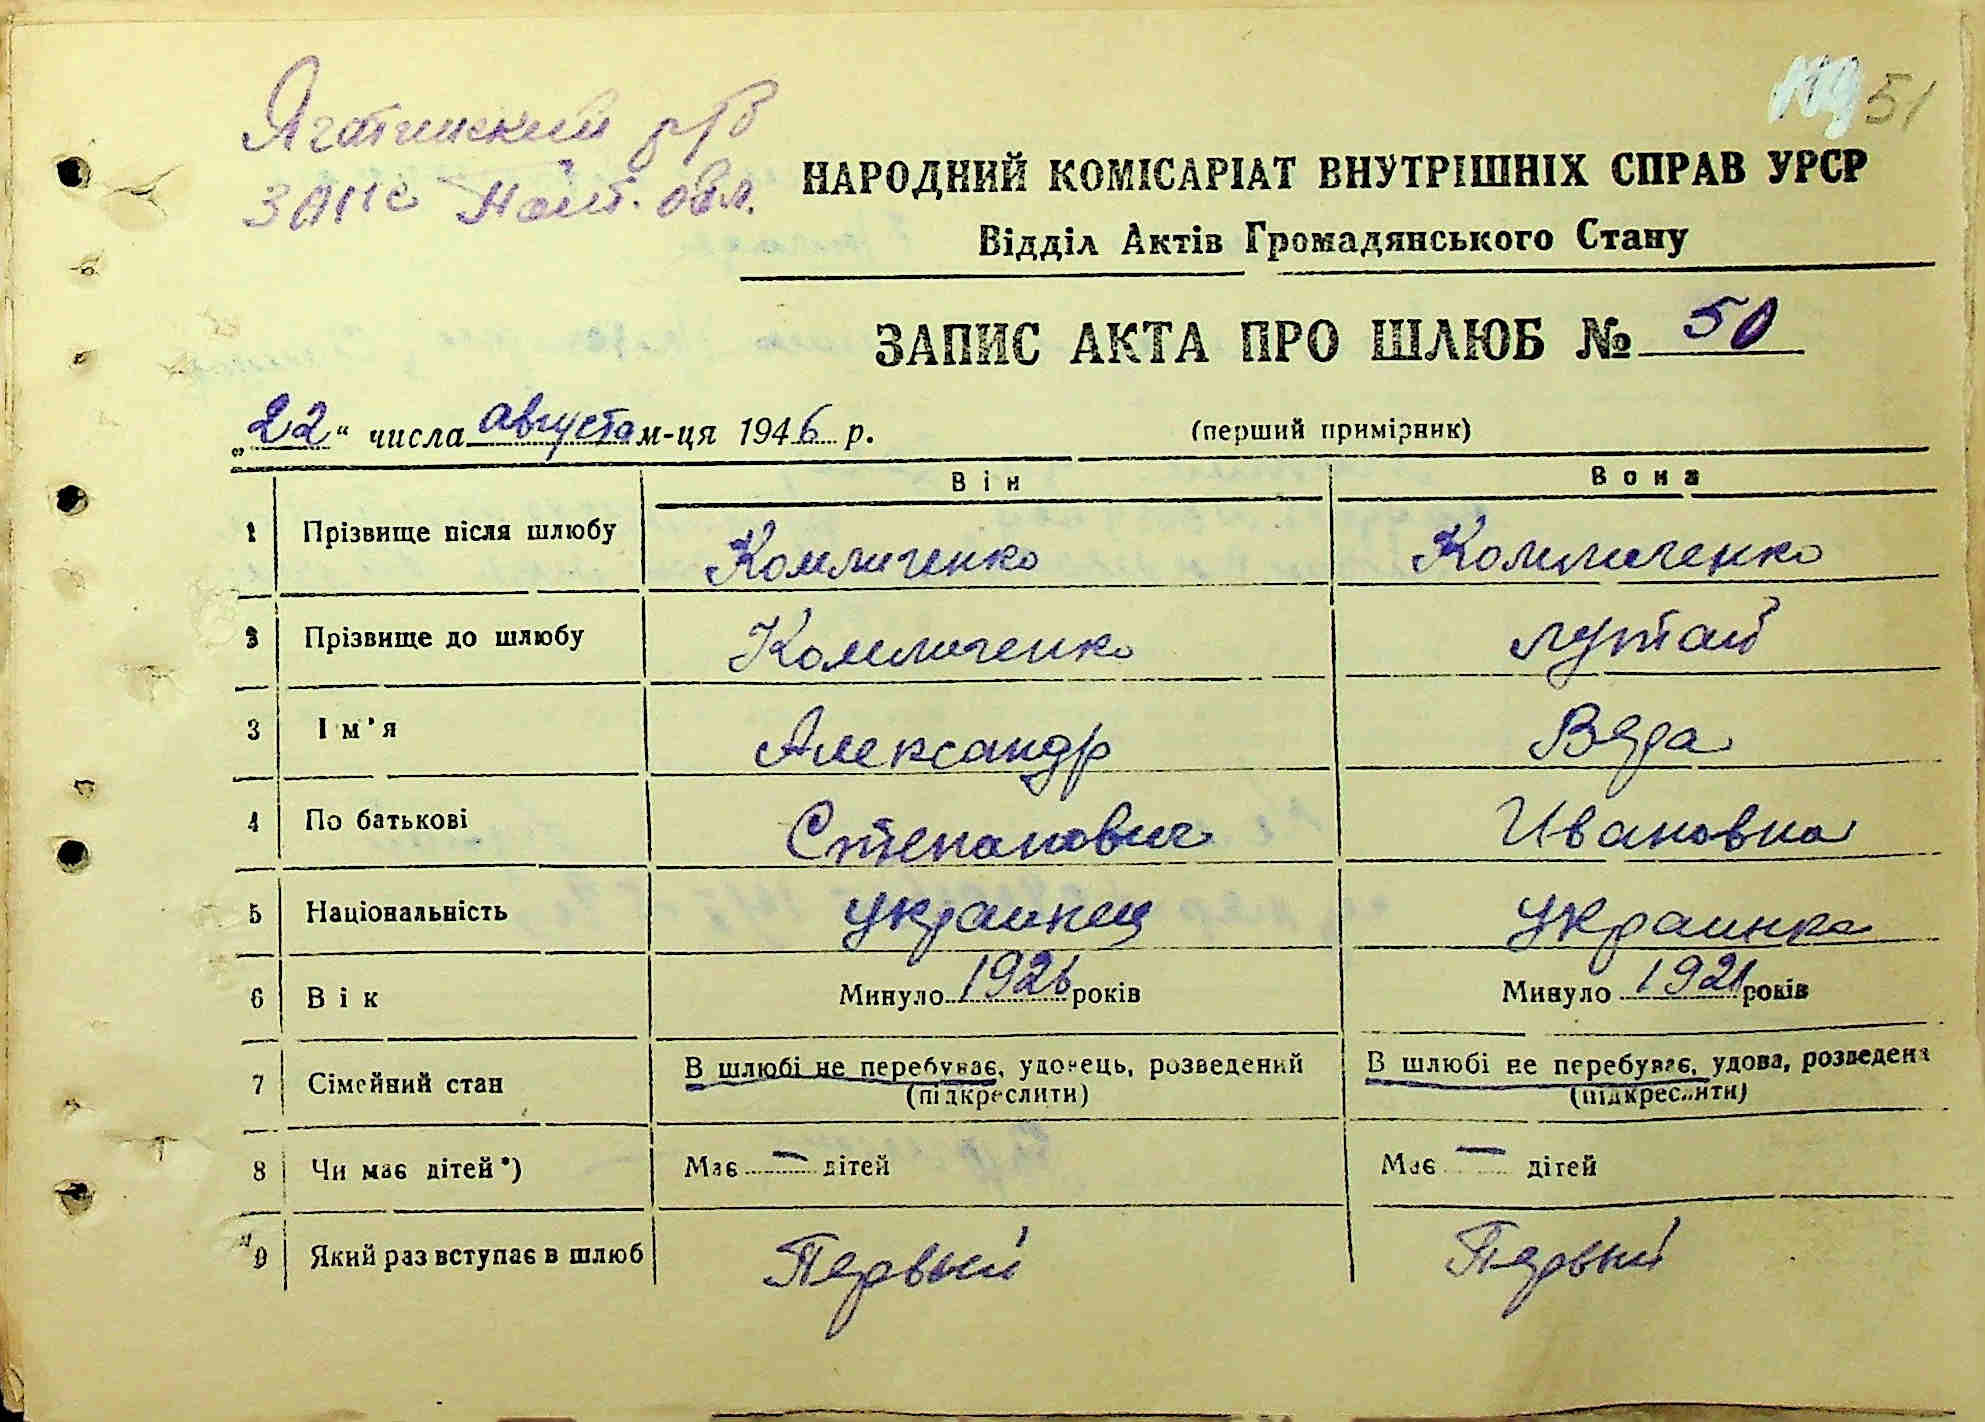 Яготинский р/б 51
ЗАГС Полт. обл.
НАРОДНИЙ КОМІСАРІАТ ВНУТРІШНІХ СПРАВ УРСР
Відділ Актів Громадянського Стану
ЗАПИС АКТА ПРО ШЛЮБ № 50
„22“ числа августа м-ця 1946 р. (перший примірник)
Він Вона
1 Прізвище після шлюбу Комличенко Комличенко
2 Прізвище до шлюбу Комличенко Лутай
3 Ім'я Александр Вера
4 По батькові Степанович Ивановна
5 Національність украинец украинка
6 Вік Минуло 1926 років Минуло 1921 років
7 Сімейний стан В шлюбі не перебуває, удовець, розведений В шлюбі не перебуває, удова, розведена
(підкреслити) (підкреслити)
8 Чи має дітей*) Має — дітей Має — дітей
9 Який раз вступає в шлюб Первый Первый